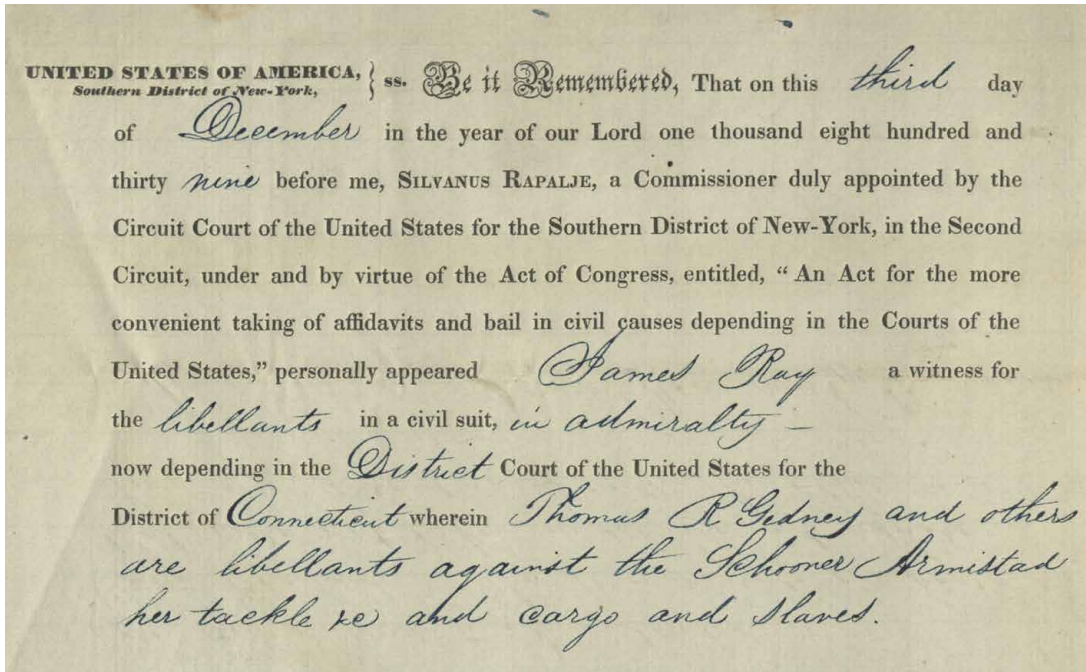 UNITED STATES OF AMERICA, } ss. Be it Remembered, That on this third day
Southern District of New-York,
of December in the year of our Lord one thousand eight hundred and
thirty nine before me, SILVANUS RAPALJE, a Commissioner duly appointed by the
Circuit Court of the United States for the Southern District of New-York, in the Second
Circuit, under and by virtue of the Act of Congress, entitled, “An Act for the more
convenient taking of affidavits and bail in civil causes depending in the Courts of the
United States,” personally appeared James Ray a witness for
the libellants in a civil suit, in admiralty —
now depending in the District Court of the United States for the
District of Connecticut wherein Thomas R Gedney and others
are libellants against the Schooner Armistad
her tackle &c and cargo and slaves.